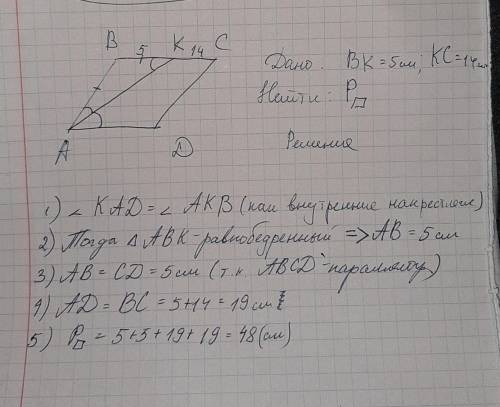 B 5 K 14 C
A D
Дано: BK = 5 см; KC = 14 см
Найти: P▱
Решение
1) ∠ KAD = ∠ AKB (как внутренние накрестлеж)
2) Тогда △ ABK - равнобедренный => AB = 5 см
3) AB = CD = 5 см (т.к. ABCD - параллелогр)
4) AD = BC = 5 + 14 = 19 см
5) P▱ = 5 + 5 + 19 + 19 = 48 (см)